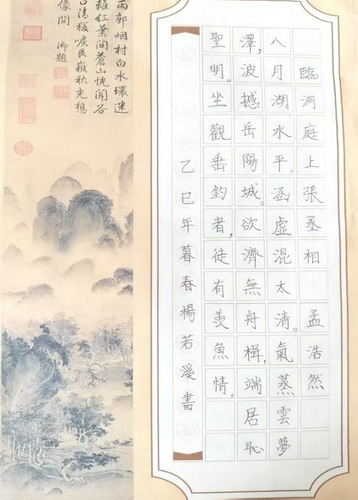 臨洞庭上張丞相 孟浩然
八月湖水平。涵虛混太清。氣蒸雲夢
澤,波撼岳陽城。欲濟無舟楫,端居恥
聖明。坐觀垂釣者,徒有羨魚情。
乙巳年暮春楊若溪書
雨郭烟村白水環迷
離紅葉間蒼山恍聞谷
口清猿唳艮嶽秋光想
像間 御題